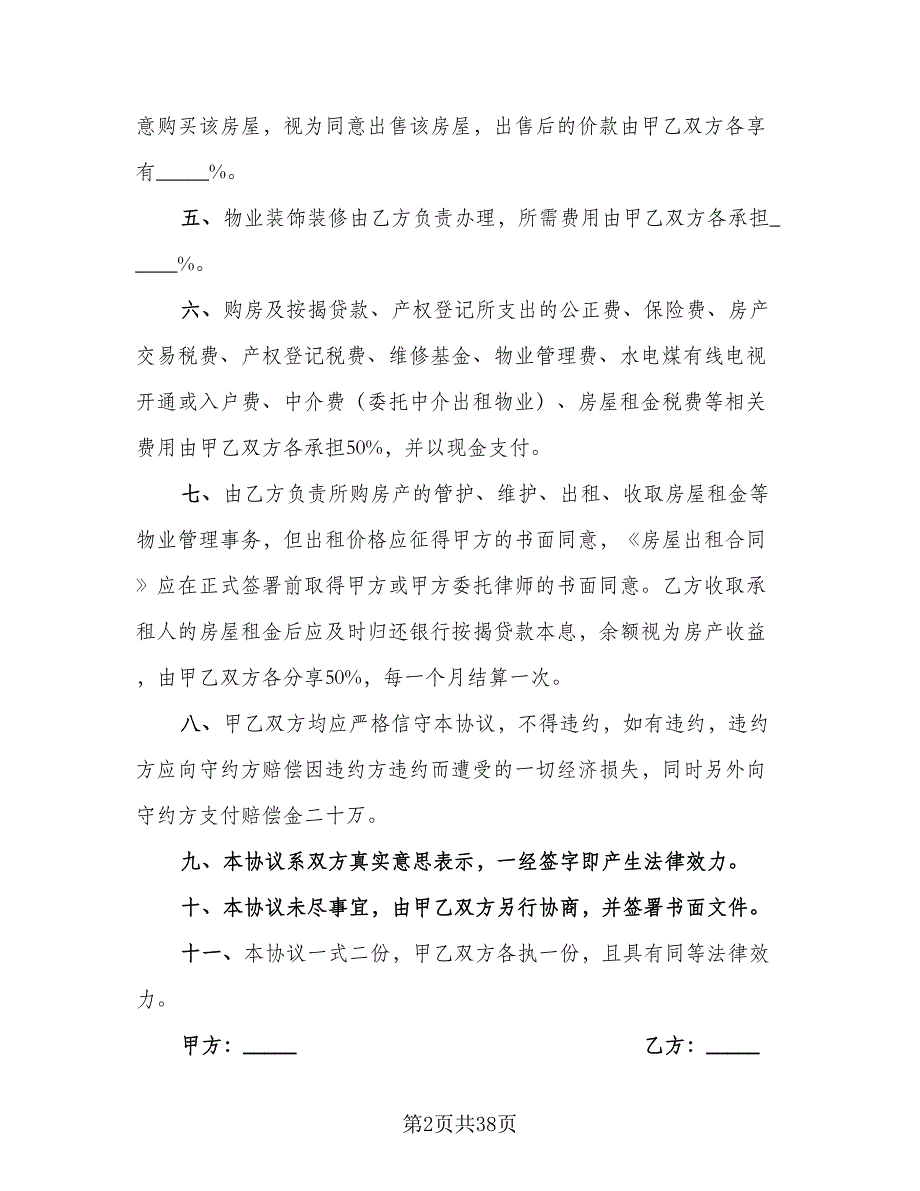 意购买该房屋，视为同意出售该房屋，出售后的价款由甲乙双方各享
有_____%。
五、物业装饰装修由乙方负责办理，所需费用由甲乙双方各承担_
____%。
六、购房及按揭贷款、产权登记所支出的公正费、保险费、房产
交易税费、产权登记税费、维修基金、物业管理费、水电煤有线电视
开通或入户费、中介费（委托中介出租物业）、房屋租金税费等相关
费用由甲乙双方各承担50%，并以现金支付。
七、由乙方负责所购房产的管护、维护、出租、收取房屋租金等
物业管理事务，但出租价格应征得甲方的书面同意，《房屋出租合同
》应在正式签署前取得甲方或甲方委托律师的书面同意。乙方收取承
租人的房屋租金后应及时归还银行按揭贷款本息，余额视为房产收益
，由甲乙双方各分享50%，每一个月结算一次。
八、甲乙双方均应严格信守本协议，不得违约，如有违约，违约
方应向守约方赔偿因违约方违约而遭受的一切经济损失，同时另外向
守约方支付赔偿金二十万。
九、本协议系双方真实意思表示，一经签字即产生法律效力。
十、本协议未尽事宜，由甲乙双方另行协商，并签署书面文件。
十一、本协议一式二份，甲乙双方各执一份，且具有同等法律效
力。
甲方：_____ 乙方：_____
第2页共38页